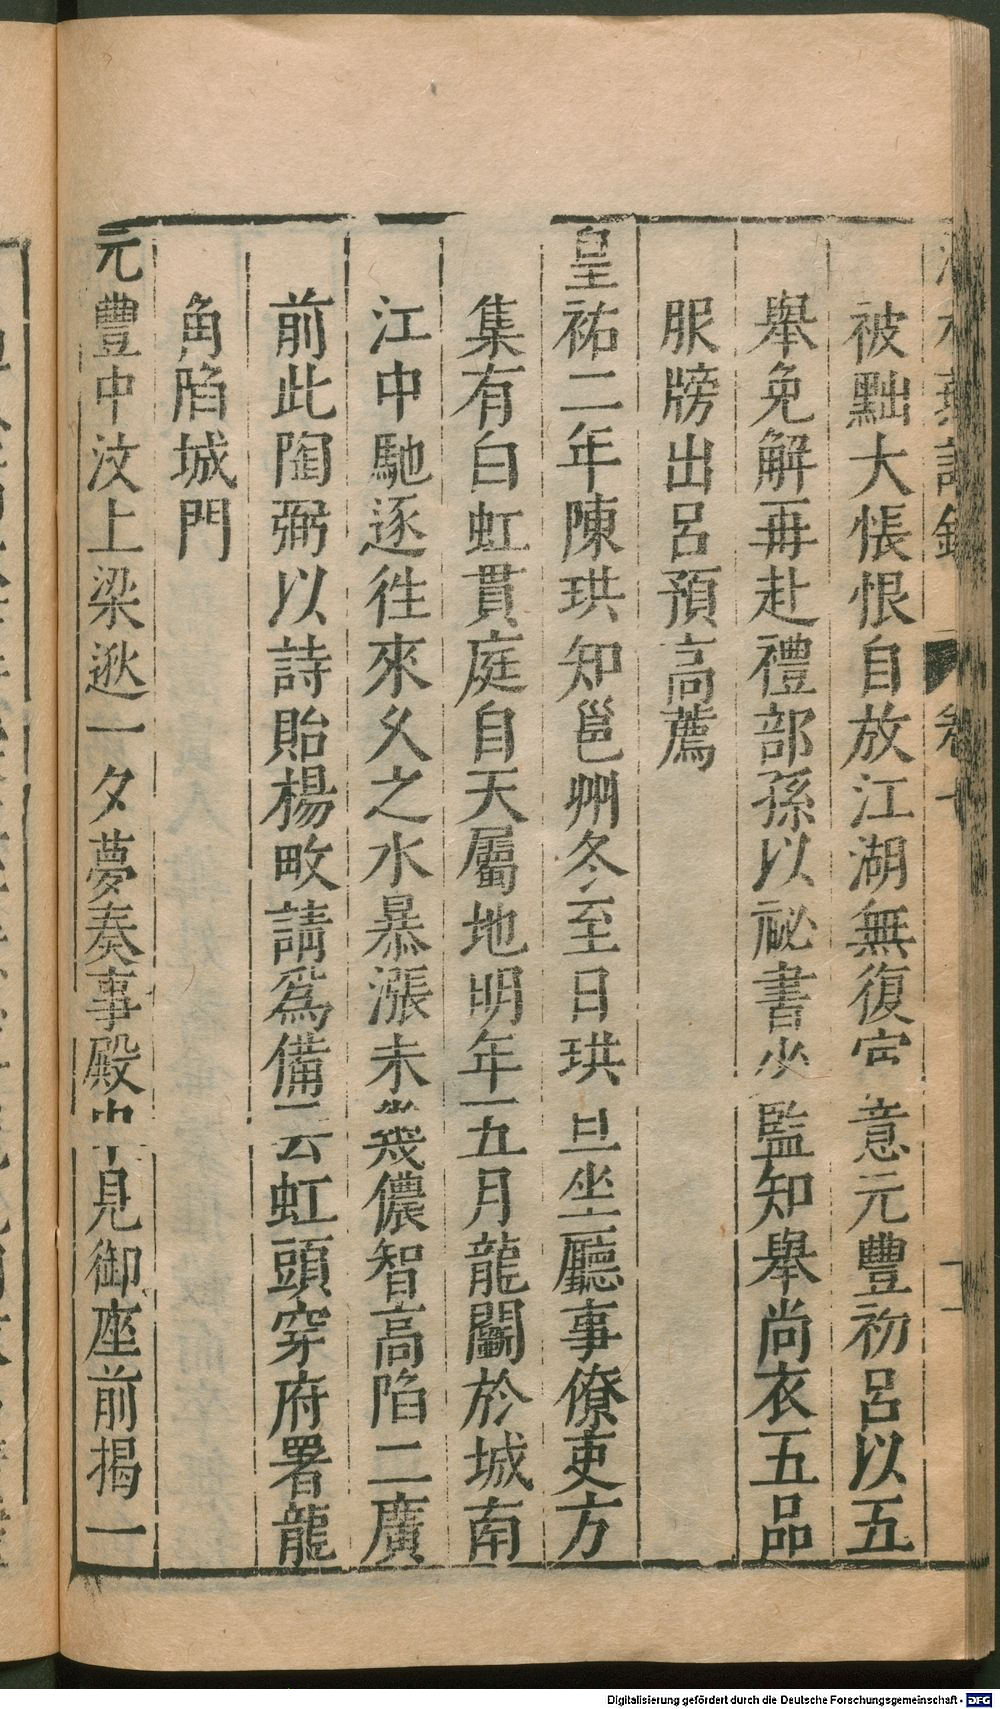 被黜大悵恨自放江湖無復宦意元豐初呂以五
舉免解再赴禮部孫以祕書少監知舉尚衣五品
服牓出呂預高薦
皇祐二年陳珙知邕州冬至日珙旦坐廳事僚吏方
集有白虹貫庭自天屬地明年五月龍鬭於城南
江中馳逐徃來久之水暴漲未幾儂智高陷二廣
前此陶弼以詩貽楊畋請爲備云虹頭穿府署龍
角陷城門
元豐中汶上梁逖一夕夢奏事殿中見御座前揭一
Digitalisierung gefördert durch die Deutsche Forschungsgemeinschaft - DFG